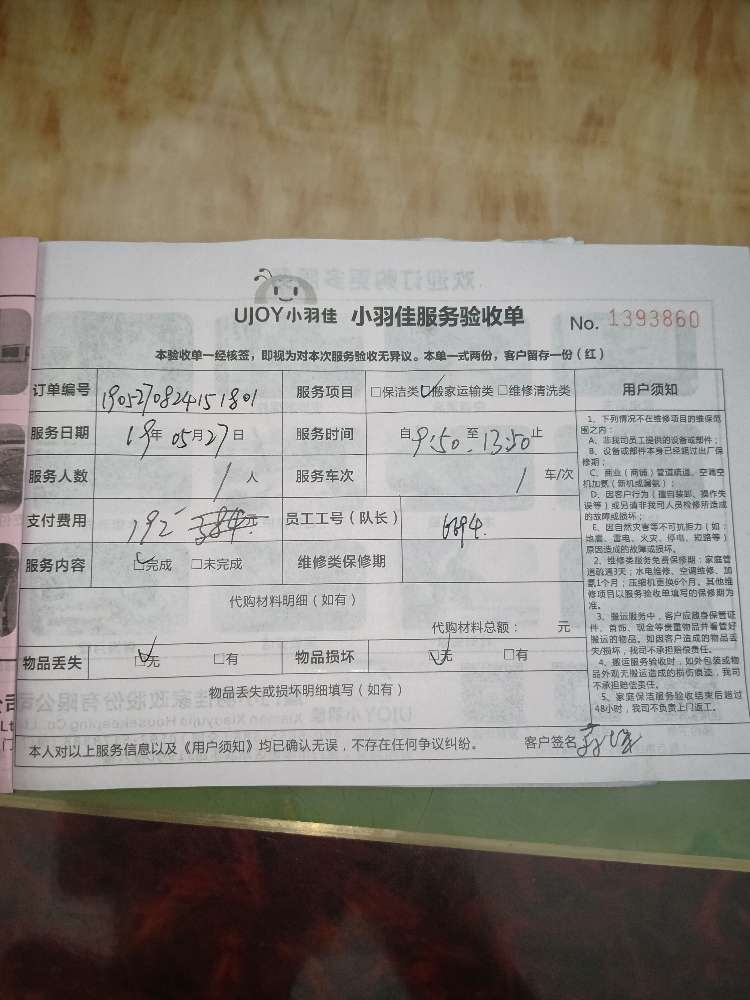 UJOY小羽佳 小羽佳服务验收单 No. 1393860
本验收单一经核签，即视为对本次服务验收无异议。本单一式两份，客户留存一份（红）
订单编号 190527082415 1801 服务项目 □保洁类 ☑搬家运输类 □维修清洗类
服务日期 19年 05月 27日 服务时间 自9:50 至 13:50止
服务人数 1 人 服务车次 1 车/次
支付费用 192 元 员工工号（队长） 6694.
服务内容 ☑完成 □未完成 维修类保修期
代购材料明细（如有）
代购材料总额： 元
物品丢失 ☑无 □有 物品损坏 ☑无 □有
物品丢失或损坏明细填写（如有）
本人对以上服务信息以及《用户须知》均已确认无误，不存在任何争议纠纷。 客户签名
用户须知
1、下列情况不在维修项目的维保范
围之内：
A、非我司员工提供的设备或部件；
B、设备或部件本身已经超过出厂保
修期；
C、商业（商铺）管道疏通、空调空
机加氨（新机或漏氨）；
D、因客户行为（擅自装卸、操作失
误等）或另请非我司人员检修所造成
的故障或损坏；
E、因自然灾害等不可抗力（如：
地震、雷电、火灾、停电、短路等）
原因造成的故障或损坏。
2、维修类服务免费保修期：家庭管
道疏通3天；水电维修、空调维修、加
氨1个月；压缩机更换6个月。其他维
修项目以服务验收单填写的保修期为
准。
3、搬运服务中，客户应随身保管证
件、首饰、现金等贵重物品并看管好
搬运的物品。如因客户造成的物品丢
失/损坏，我司不承担赔偿责任。
4、搬运服务验收时，如外包装或物
品外观无搬运造成的损伤痕迹，我司
不承担赔偿责任。
5、家庭保洁服务验收结束后超过
48小时，我司不负责上门返工。